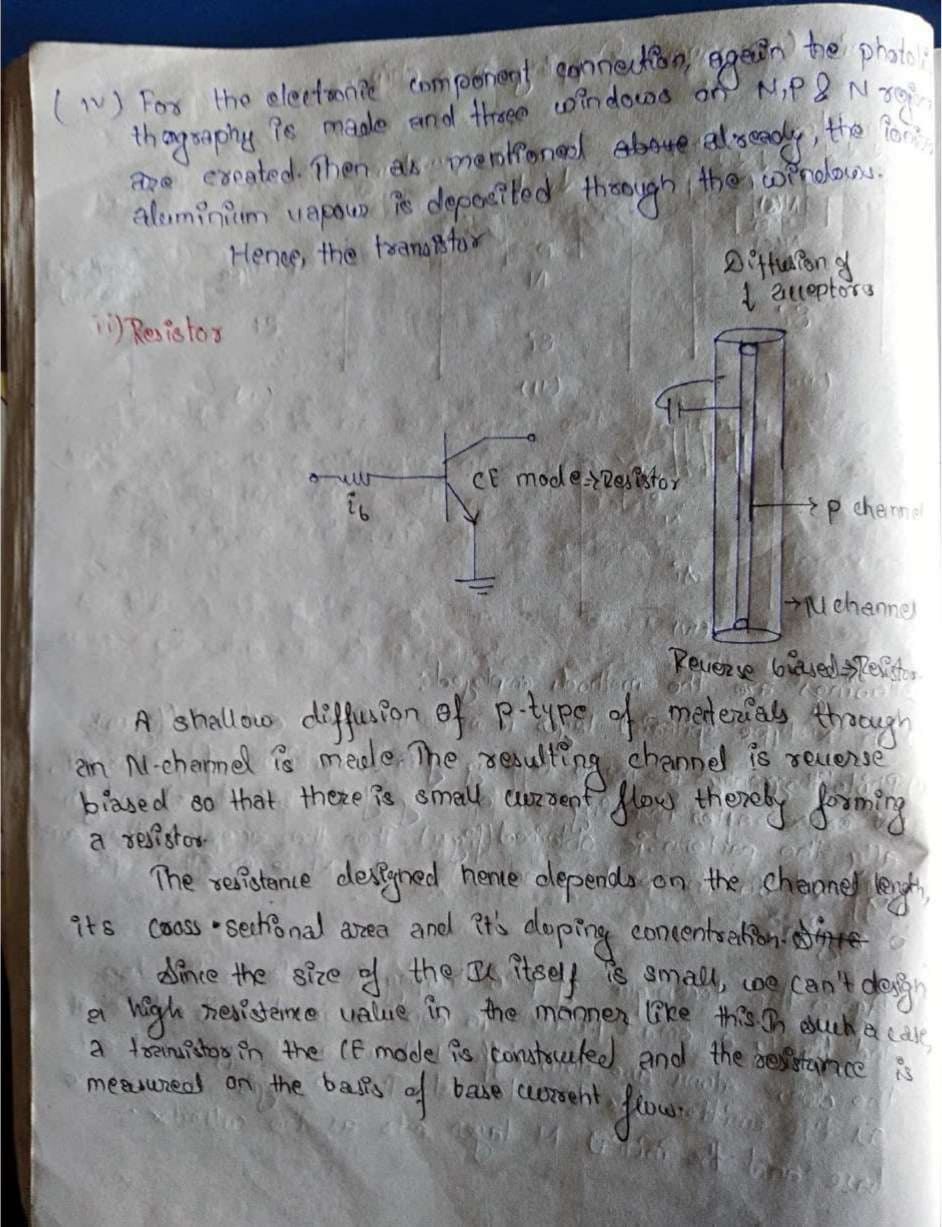 (iv) For the electronic component connection, again the photoli
thography is made and three windows on N,P & N region
are created. Then as mentioned above already, the ionic
aluminium vapour is deposited through the windows.
Hence, the transistor
Diffusion of
acceptors
ii) Resistor
CE mode⇒Resistor
ib
→ P channel
→ N channel
Reverse biased⇒Resistor
A shallow diffusion of p-type of materials through
an N-channel is made. The resulting channel is reverse
biased so that there is small current flow thereby forming
a resistor.
The resistance designed hence depends on the channel length,
its cross-sectional area and it's doping concentration. Since
Since the size of the IC itself is small, we can't design
a high resistance value in the manner like this. In such a case,
a transistor in the CE mode is constructed and the resistance is
measured on the basis of base current flow.